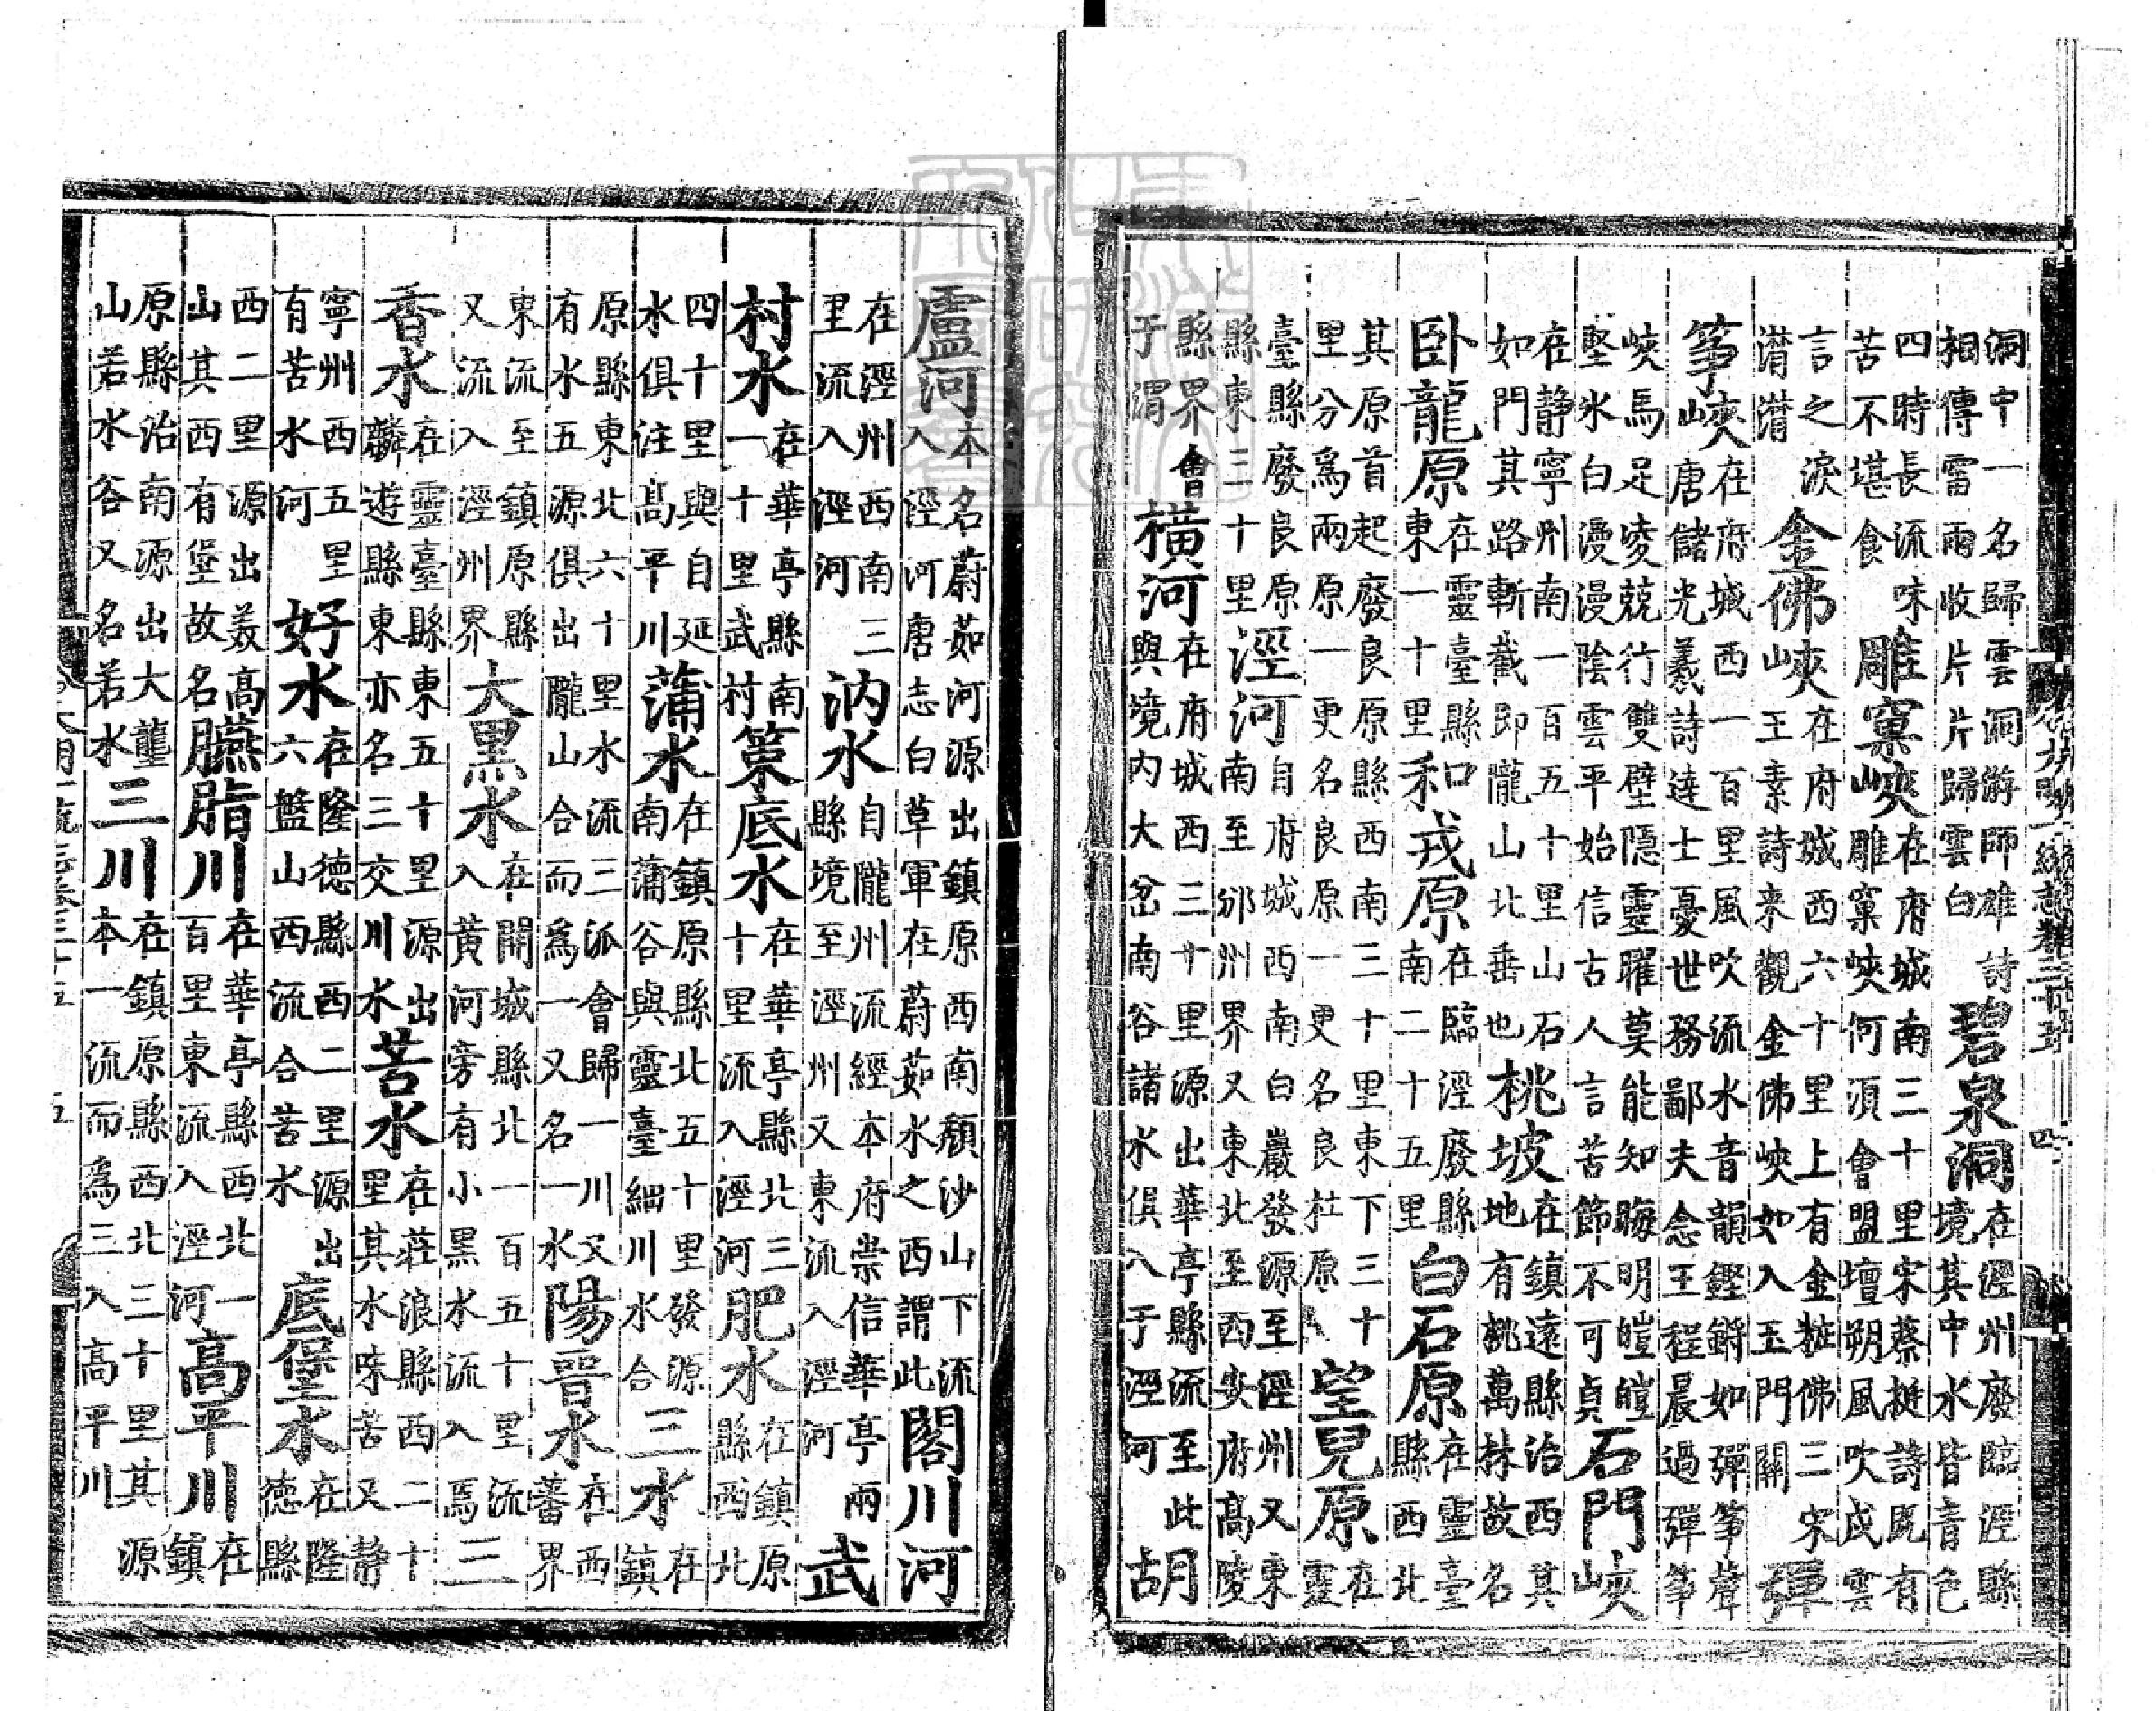 洞中一名歸雲洞游師雄詩相傳雷雨收片片歸雲白碧泉洞在涇州廢臨涇縣境其中水皆青色
四時長流味苦不堪食雕窠峽在府城南三十里宋蔡挺詩既有雕窠峽何須會盟壇朔風吹戍雲
言之淚潸潸金佛峽在府城西六十里上有金粧佛三宋王素詩来觀金佛峽如入玉門關彈
筝峽在府城西一百里風吹流水音韻鏗鏘如彈筝聲唐儲光羲詩達士憂世務鄙夫念王程晨過彈筝
峽馬足凌兢行雙壁隱靈曜莫能知晦明皚皚堅氷白漫漫陰雲平始信古人言苦節不可貞石門峽
在静寧州南一百五十里山石如門其路斬截即隴山北垂也桃坡在鎮遠縣治西其地有桃萬株故名
卧龍原在靈臺縣東一十里和戎原在臨涇廢縣南二十五里白石原在靈臺縣西北
其原首起廢良原縣西南三十里東下三十里分爲兩原一更名良原一更名良杜原望兒原在靈
臺縣廢良原縣東三十里涇河自府城西南白巖發源至涇州又東南至邠州界又東北至西安府高陵
縣界會于渭橫河在府城西三十里源出華亭縣流至此與境内大岔南谷諸水俱入于涇河胡
盧河本名蔚茹河源出鎮原西南頽沙山下流入涇河唐志白草軍在蔚茹水之西謂此閣川河
在涇州西南三里流入涇河汭水自隴州流經本府崇信華亭兩縣境至涇州又東流入涇河武
村水在華亭縣南一十里武村策底水在華亭縣北三十里流入涇河肥水在鎮原縣西北
四十里與自延水俱注高平川蒲水在鎮原縣北五十里發源南蒲谷與靈臺細川水合三水在鎮
原縣東北六十里水流三派會歸一川又有水五源俱出隴山合而爲一又名一水陽晉水在西蕃界
東流至鎮原縣又流入涇州界大黑水在開城縣北一百五十里流入黄河旁有小黑水流入焉三
香水在靈臺縣東五十里源出麟遊縣東亦名三交川水苦水在莊浪縣西二十里其水味苦又静
寧州西五里有苦水河好水在隆德縣西二里源出六盤山西流合苦水底堡水在隆德縣
西二里源出美高山其西有堡故名臙脂川在華亭縣西北一百里東流入涇河高平川在鎮
原縣治南源出大隴山若水谷又名若水三川在鎮原縣西北三十里其源本一流而爲三入高平川
大明一統志卷三十五 五